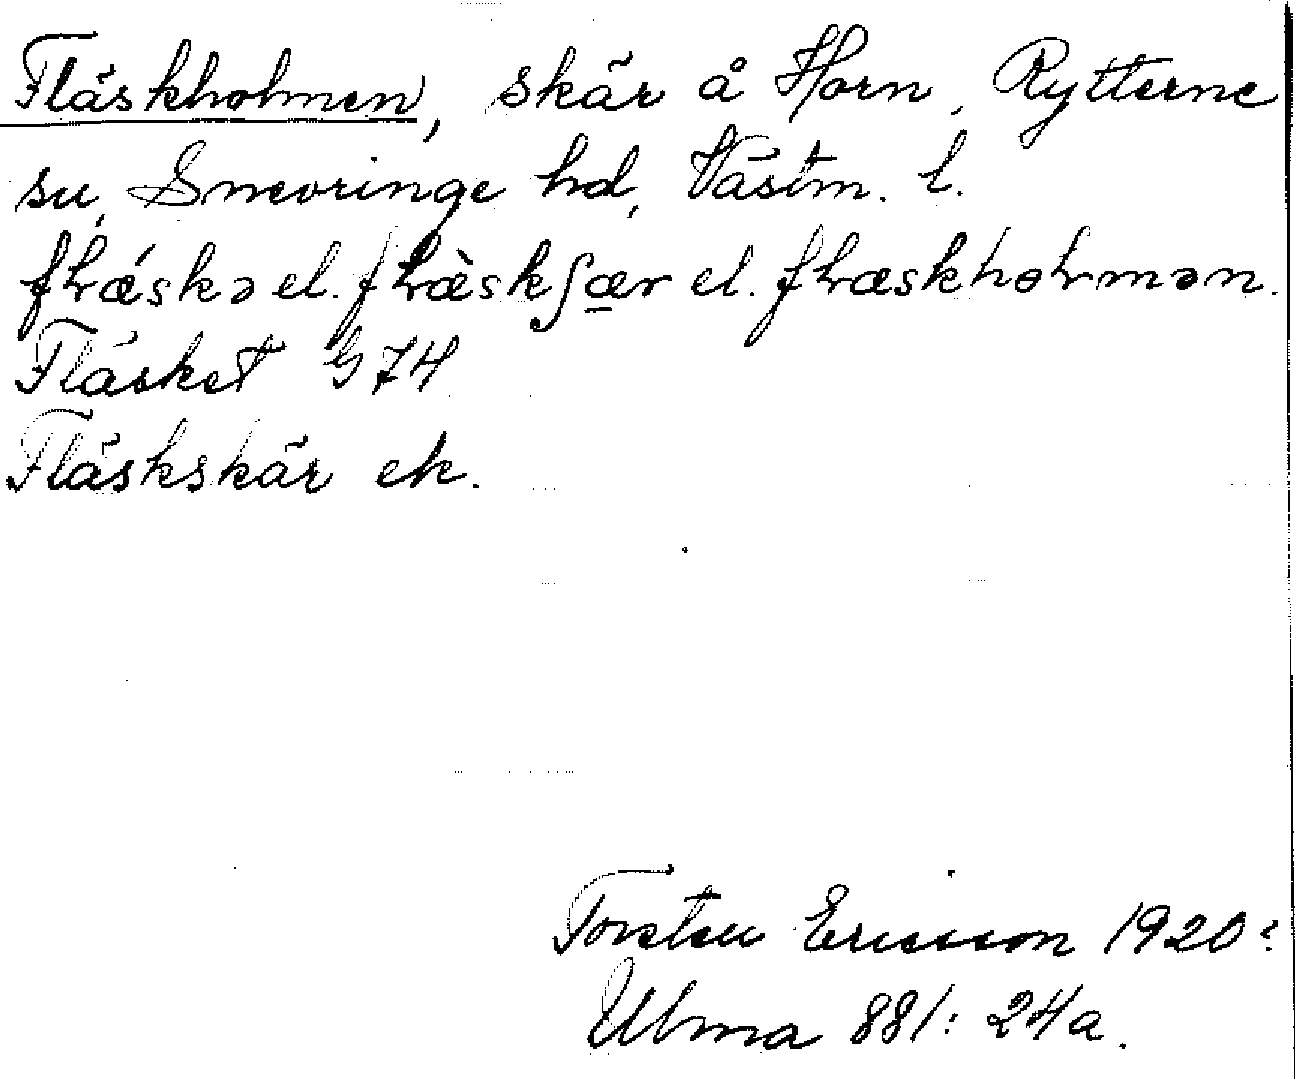 Fläskholmen, skär å Horn, Rytterne
sn, Snevringe hd, Västm. l.
fɫǽskə el. fɫæ̀skʃæ̲r el. fɫæskhoɫmən.
Fläsket G 74
Fläskskär ek.
Torsten Ericsson 1920
Ulma 881: 24a.